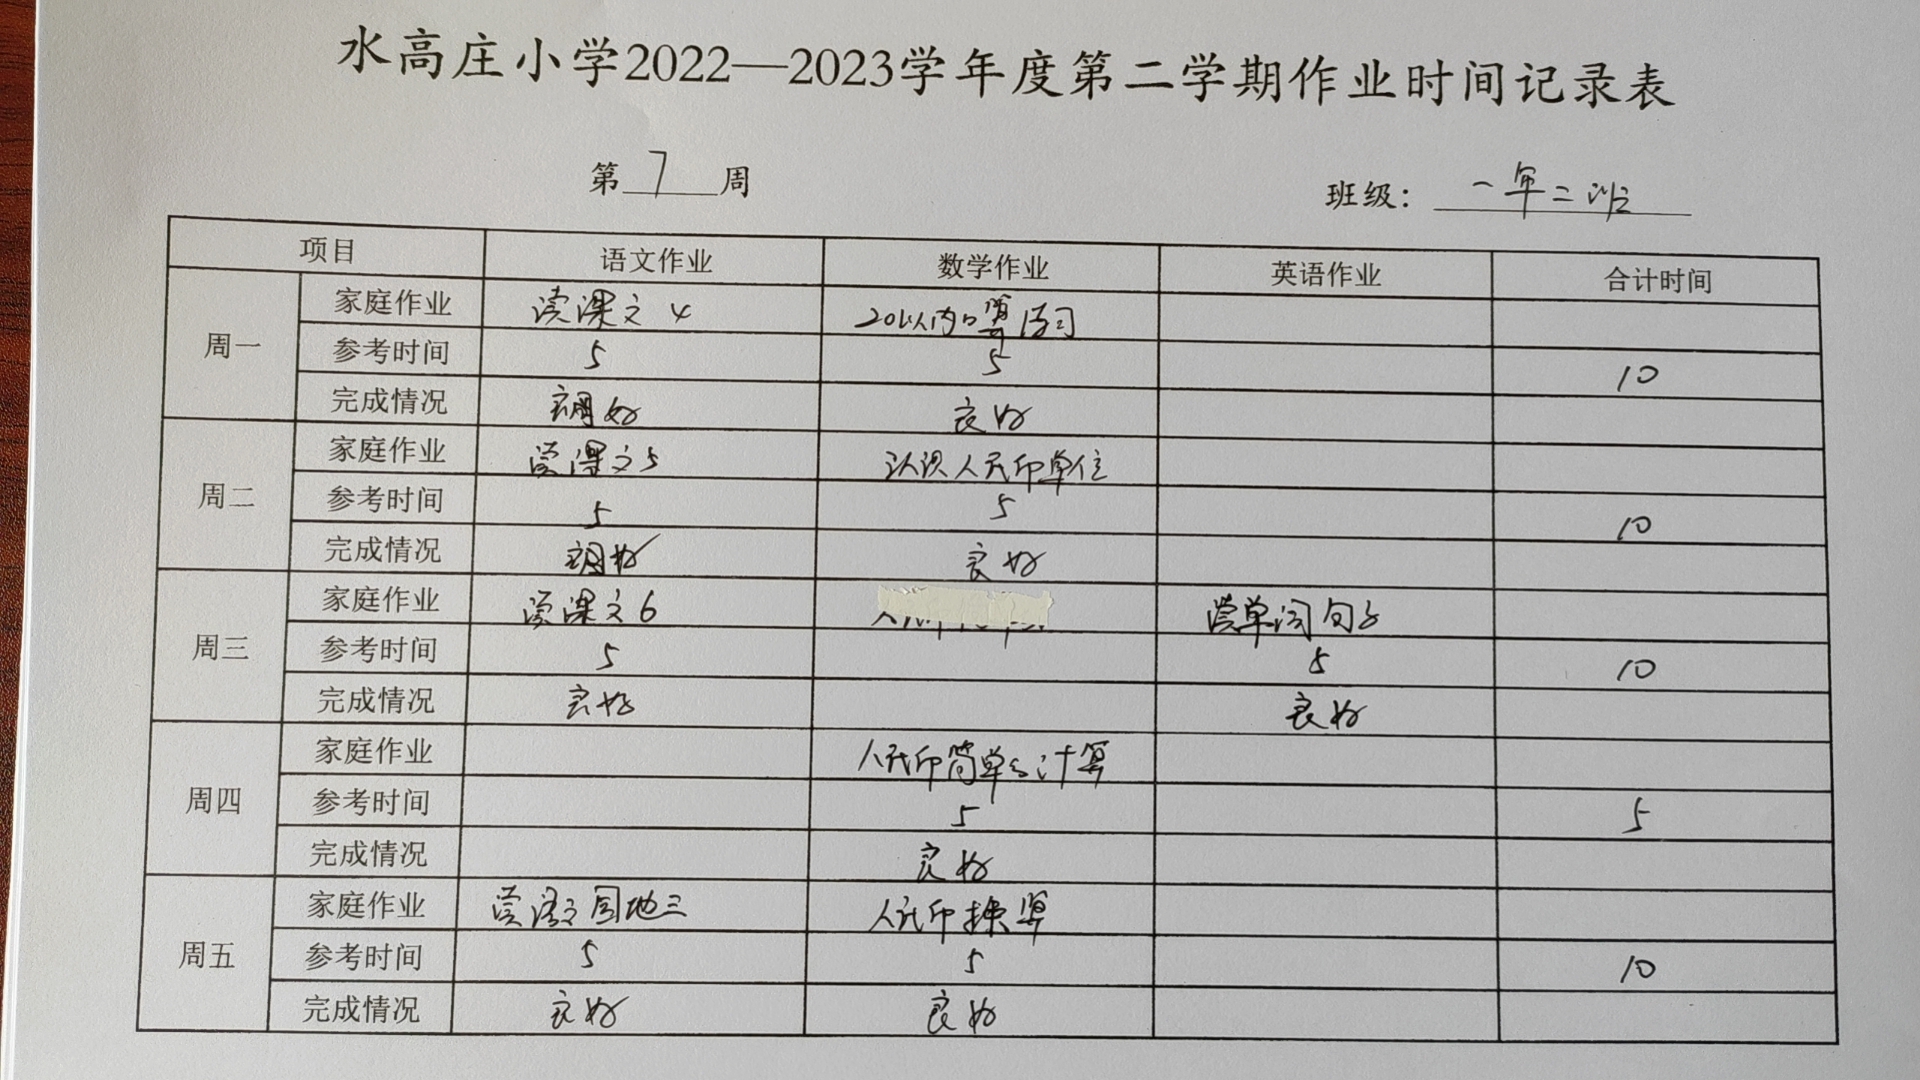 水高庄小学2022—2023学年度第二学期作业时间记录表
第7周 班级：一年二班
项目 语文作业 数学作业 英语作业 合计时间
周一
家庭作业 读课文4 20以内口算练习
参考时间 5 5 10
完成情况 良好 良好
周二
家庭作业 读课文5 认识人民币单位
参考时间 5 5 10
完成情况 良好 良好
周三
家庭作业 读课文6 读单词句子
参考时间 5 5 10
完成情况 良好 良好
周四
家庭作业 人民币简单的计算
参考时间 5 5
完成情况 良好
周五
家庭作业 读语文园地三 人民币换算
参考时间 5 5 10
完成情况 良好 良好